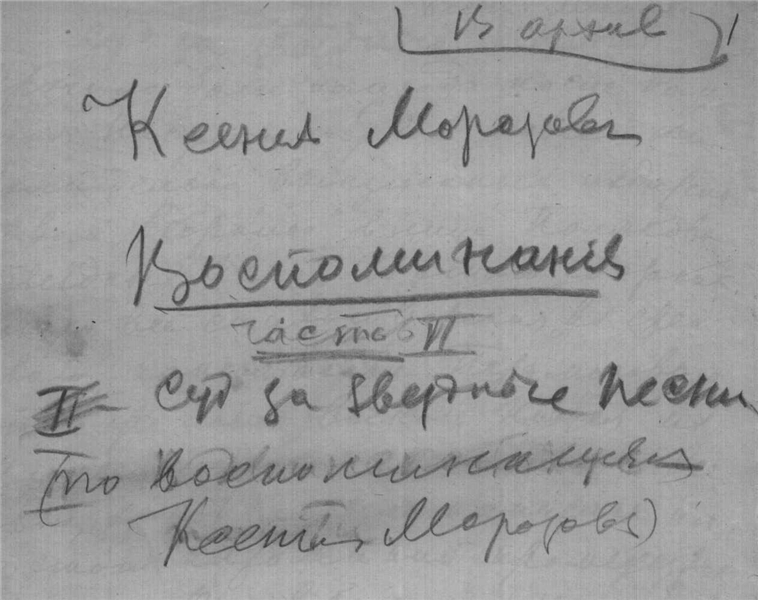 В архив
Ксения Морозова
Воспоминания
часть II
II Суд за звездные песни
(по воспоминаниям
Ксении Морозовой)